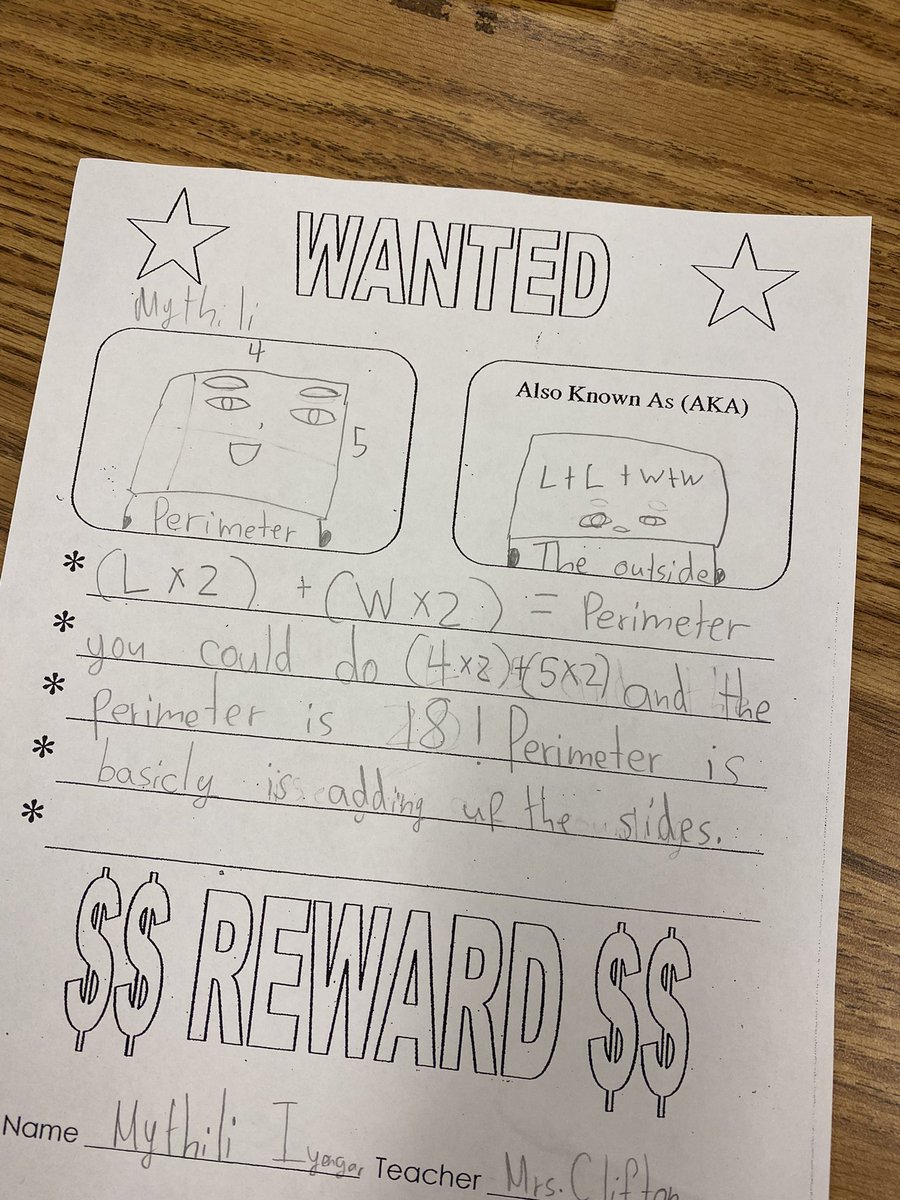 WANTED
Mythili
4
5
Perimeter
Also Known As (AKA)
L+L +W+W
The outside
* (L x 2) + (W x 2) = Perimeter
* you could do (4x2)+(5x2) and the
* Perimeter is 18! Perimeter is
* basicly is adding up the slides.
*
$$ REWARD $$
Name Mythili Iyengar Teacher Mrs. Clifton